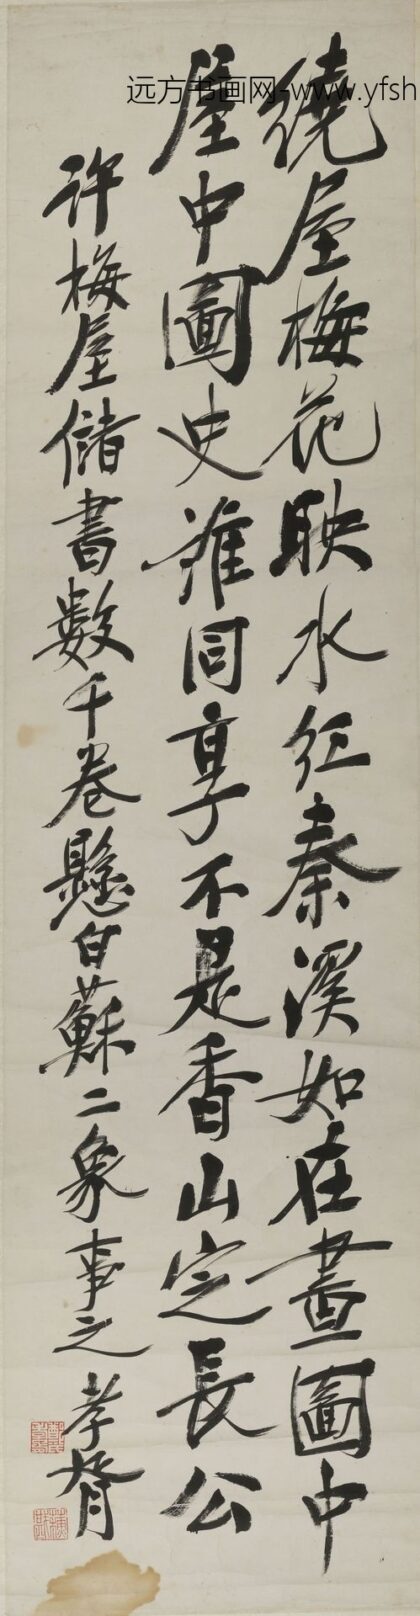 远方书画网-www.yfsh
繞屋梅花映水红秦溪如在畫圖中
屋中圖史誰同享不是香山定長公
許梅屋儲書數千卷懸白蘇二象事之 孝胥